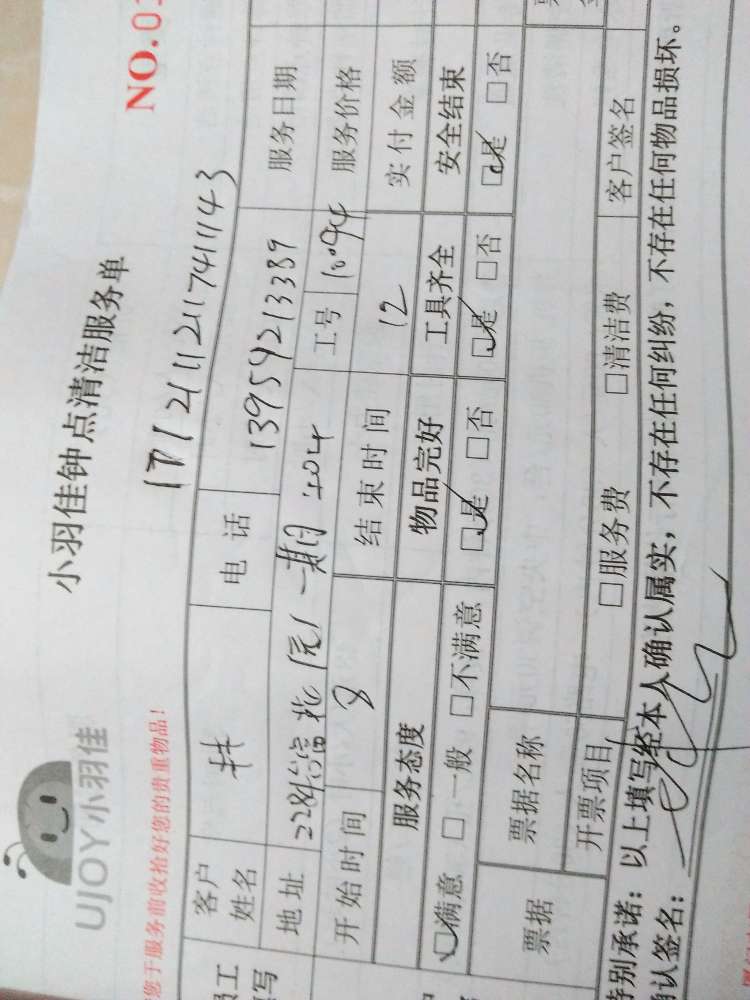 UJOY小羽佳
小羽佳钟点清洁服务单
NO.0
您于服务前收拾好您的贵重物品！
171211211741143
客户姓名 林 电话 13959213389 服务日期
地址 工号 10094 服务价格
开始时间 8 结束时间 12 实付金额
服务态度 物品完好 工具齐全 安全结束
满意 □一般 □不满意 是 □否 是 □否 是 □否
票据 票据名称
开票项目 □服务费 □清洁费 客户签名
特别承诺：以上填写经本人确认属实，不存在任何纠纷，不存在任何物品损坏。
确认签名：